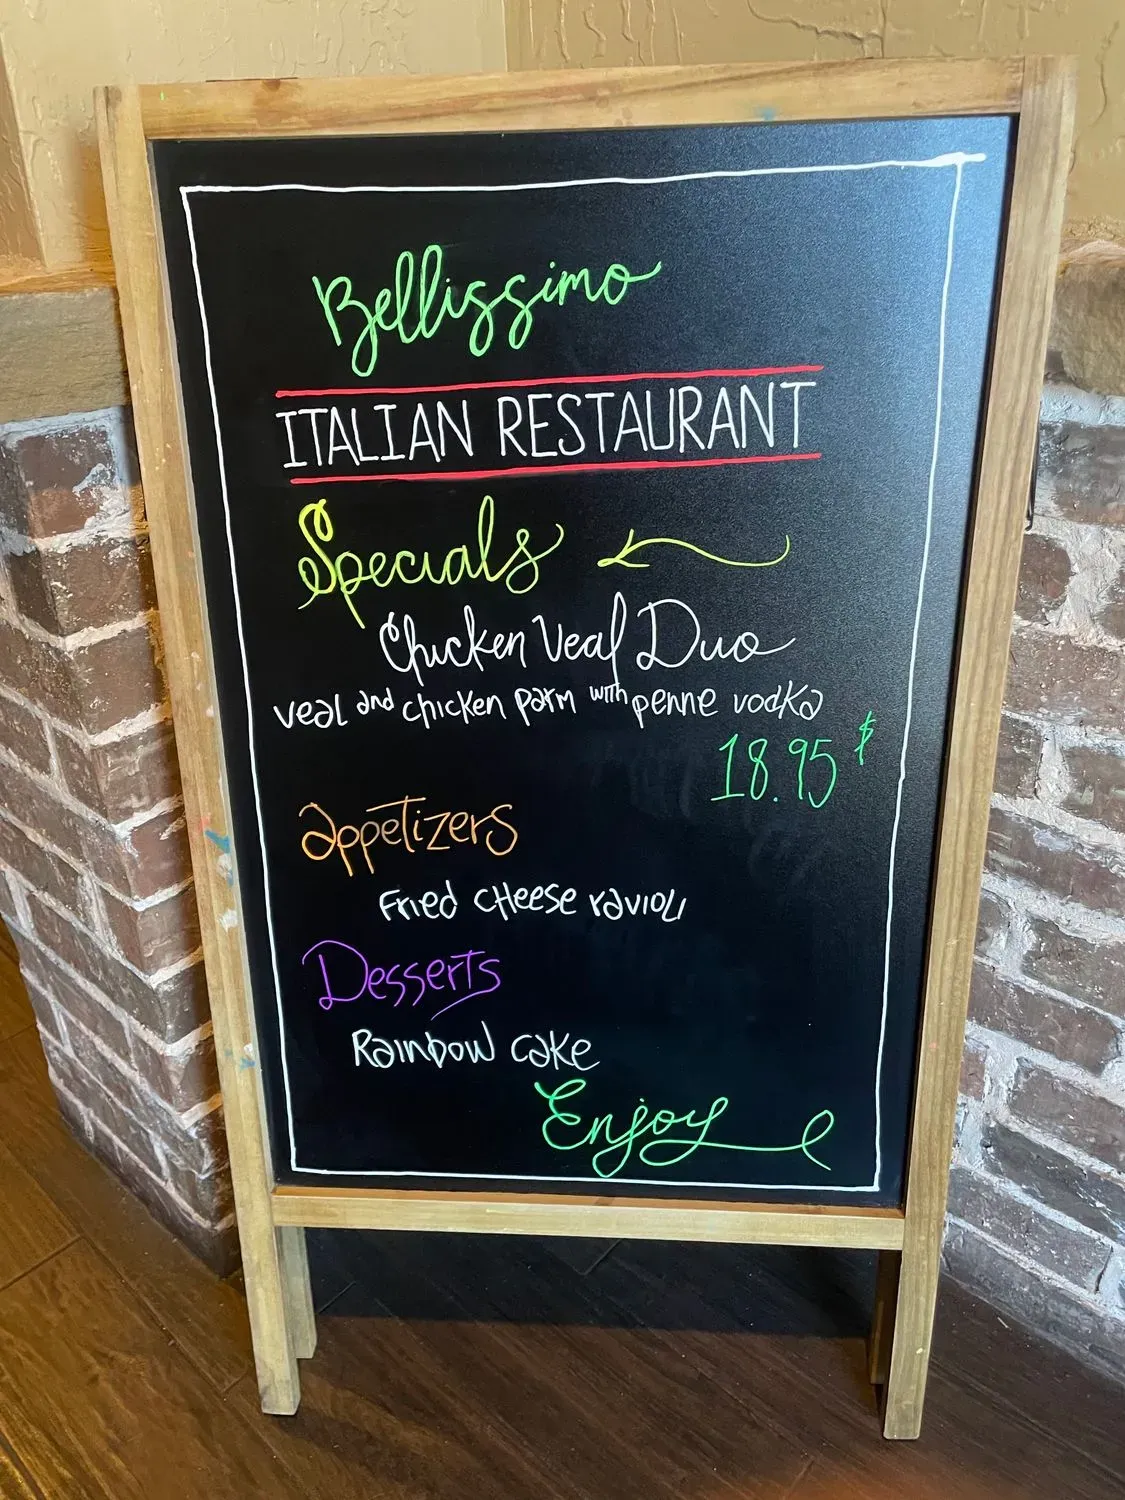 Bellissimo
ITALIAN RESTAURANT
Specials
Chicken Veal Duo
veal and chicken parm with penne vodka
18.95 $
appetizers
Fried cHeese ravioli
Desserts
Rainbow cake
Enjoy